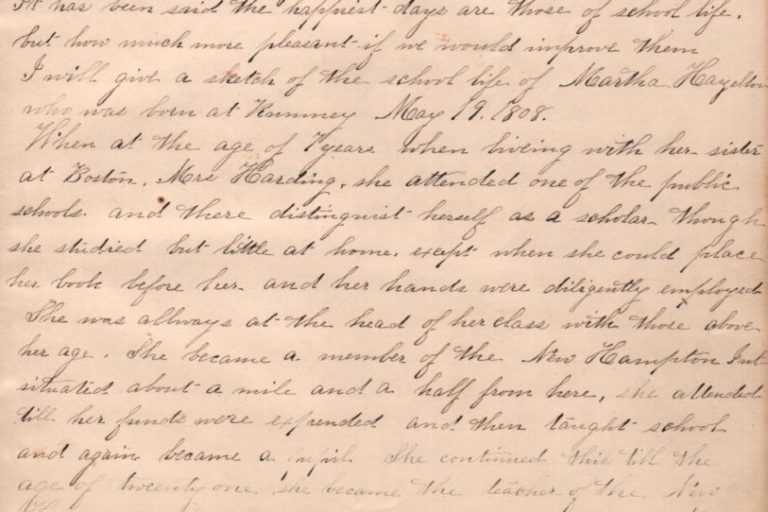 It has been said the happiest days are those of school life,
but how much more pleasant if we would improve them
I will give a sketch of the school life of Martha Hazelton
who was born at Rumney May 19. 1808.
When at the age of 7 years when liveing with her sister
at Boston, Mrs Harding, she attended one of the public
schools. and there distinguist herself as a scholar though
she studied but little at home, except when she could place
her book before her and her hands were diligently employed
She was allways at the head of her class with those above
her age. She became a member of the New Hampton Inst
situated about a mile and a half from here, she attended
till her funds were expended and then taught school
and again became a pupil She continued this till the
age of twenty one she became the teacher of the New